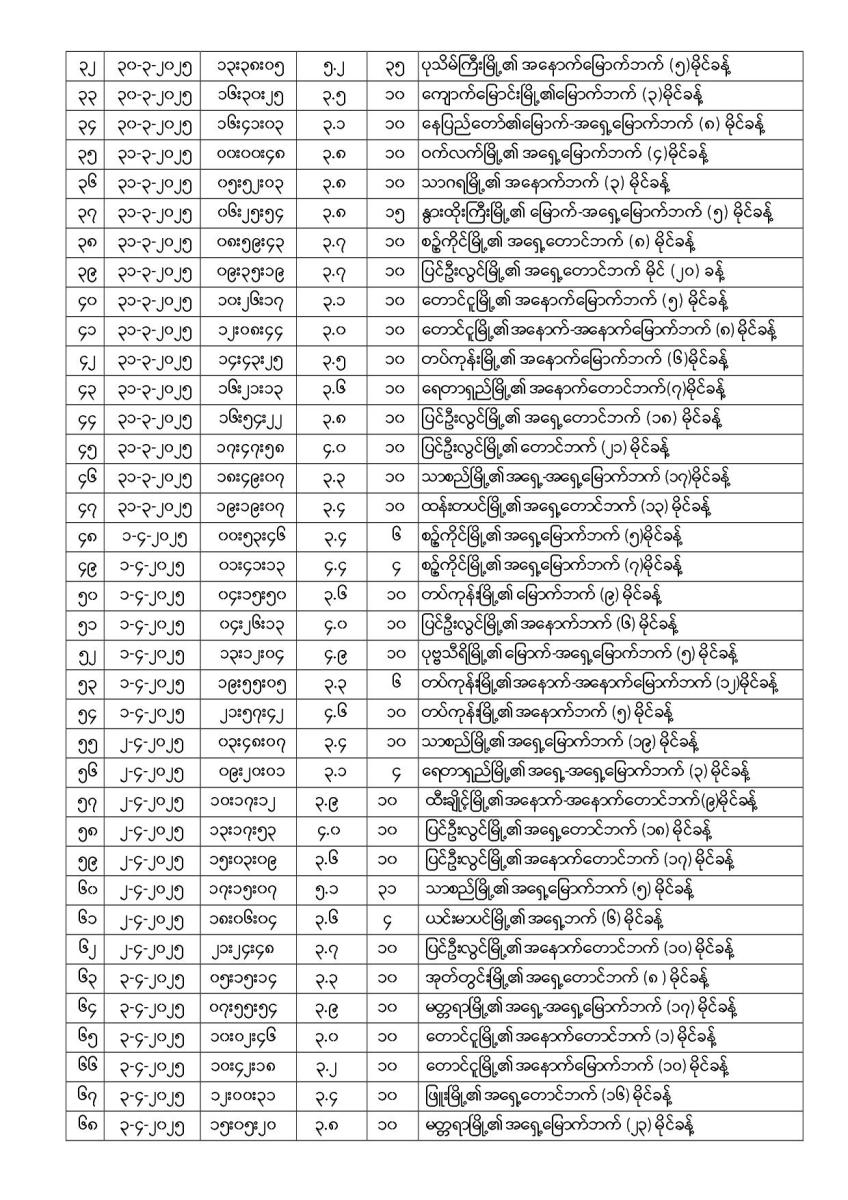 ၃၂ ၃၀-၃-၂၀၂၅ ၁၃း၃၈း၀၅ ၅.၂ ၃၅ ပုသိမ်ကြီးမြို့၏ အနောက်မြောက်ဘက် (၅)မိုင်ခန့်
၃၃ ၃၀-၃-၂၀၂၅ ၁၆း၃၀း၂၅ ၃.၅ ၁၀ ကျောက်မြောင်းမြို့၏မြောက်ဘက် (၃)မိုင်ခန့်
၃၄ ၃၀-၃-၂၀၂၅ ၁၆း၄၁း၀၃ ၃.၁ ၁၀ နေပြည်တော်၏မြောက်-အရှေ့မြောက်ဘက် (၈) မိုင်ခန့်
၃၅ ၃၁-၃-၂၀၂၅ ၀၀း၀၀း၄၈ ၃.၈ ၁၀ ဝက်လက်မြို့၏ အရှေ့မြောက်ဘက် (၄)မိုင်ခန့်
၃၆ ၃၁-၃-၂၀၂၅ ၀၅း၅၂း၀၃ ၃.၈ ၁၀ သာဂရမြို့၏ အနောက်ဘက် (၃) မိုင်ခန့်
၃၇ ၃၁-၃-၂၀၂၅ ၀၆း၂၅း၅၄ ၃.၈ ၁၅ နွားထိုးကြီးမြို့၏ မြောက်-အရှေ့မြောက်ဘက် (၅) မိုင်ခန့်
၃၈ ၃၁-၃-၂၀၂၅ ၀၈း၅၉း၄၃ ၃.၇ ၁၀ စဥ့်ကိုင်မြို့၏ အရှေ့တောင်ဘက် (၈) မိုင်ခန့်
၃၉ ၃၁-၃-၂၀၂၅ ၀၉း၃၅း၁၉ ၃.၇ ၁၀ ပြင်ဦးလွင်မြို့၏ အရှေ့တောင်ဘက် မိုင် (၂၀) ခန့်
၄၀ ၃၁-၃-၂၀၂၅ ၁၀း၂၆း၁၇ ၃.၁ ၁၀ တောင်ငူမြို့၏ အနောက်မြောက်ဘက် (၅) မိုင်ခန့်
၄၁ ၃၁-၃-၂၀၂၅ ၁၂း၀၈း၄၄ ၃.၀ ၁၀ တောင်ငူမြို့၏ အနောက်-အနောက်မြောက်ဘက် (၈) မိုင်ခန့်
၄၂ ၃၁-၃-၂၀၂၅ ၁၄း၄၃း၂၅ ၃.၅ ၁၀ တပ်ကုန်းမြို့၏ အနောက်မြောက်ဘက် (၆)မိုင်ခန့်
၄၃ ၃၁-၃-၂၀၂၅ ၁၆း၂၁း၁၃ ၃.၆ ၁၀ ရေတာရှည်မြို့၏ အနောက်တောင်ဘက်(၇)မိုင်ခန့်
၄၄ ၃၁-၃-၂၀၂၅ ၁၆း၅၄း၂၂ ၃.၈ ၁၀ ပြင်ဦးလွင်မြို့၏ အရှေ့တောင်ဘက် (၁၈) မိုင်ခန့်
၄၅ ၃၁-၃-၂၀၂၅ ၁၇း၄၇း၅၈ ၄.၀ ၁၀ ပြင်ဦးလွင်မြို့၏ တောင်ဘက် (၂၁) မိုင်ခန့်
၄၆ ၃၁-၃-၂၀၂၅ ၁၈း၄၉း၀၇ ၃.၃ ၁၀ သာစည်မြို့၏ အရှေ့-အရှေ့မြောက်ဘက် (၁၇)မိုင်ခန့်
၄၇ ၃၁-၃-၂၀၂၅ ၁၉း၁၉း၀၇ ၃.၄ ၁၀ ထန်းတပင်မြို့၏ အရှေ့တောင်ဘက် (၁၃) မိုင်ခန့်
၄၈ ၁-၄-၂၀၂၅ ၀၀း၅၃း၄၆ ၃.၄ ၆ စဥ့်ကိုင်မြို့၏ အရှေ့မြောက်ဘက် (၅)မိုင်ခန့်
၄၉ ၁-၄-၂၀၂၅ ၀၁း၄၁း၁၃ ၄.၄ ၄ စဥ့်ကိုင်မြို့၏ အရှေ့မြောက်ဘက် (၇)မိုင်ခန့်
၅၀ ၁-၄-၂၀၂၅ ၀၄း၁၅း၅၀ ၃.၆ ၁၀ တပ်ကုန်းမြို့၏ မြောက်ဘက် (၉) မိုင်ခန့်
၅၁ ၁-၄-၂၀၂၅ ၀၄း၂၆း၁၃ ၄.၀ ၁၀ ပြင်ဦးလွင်မြို့၏ အနောက်ဘက် (၆) မိုင်ခန့်
၅၂ ၁-၄-၂၀၂၅ ၁၃း၁၂း၀၄ ၄.၉ ၁၀ ပုဗ္ဗသီရိမြို့၏ မြောက်-အရှေ့မြောက်ဘက် (၅) မိုင်ခန့်
၅၃ ၁-၄-၂၀၂၅ ၁၉း၅၅း၀၅ ၃.၃ ၆ တပ်ကုန်းမြို့၏အနောက်-အနောက်မြောက်ဘက် (၁၂)မိုင်ခန့်
၅၄ ၁-၄-၂၀၂၅ ၂၁း၅၇း၄၂ ၄.၆ ၁၀ တပ်ကုန်းမြို့၏ အနောက်ဘက် (၅) မိုင်ခန့်
၅၅ ၂-၄-၂၀၂၅ ၀၃း၄၈း၀၇ ၃.၄ ၁၀ သာစည်မြို့၏ အရှေ့မြောက်ဘက် (၁၉) မိုင်ခန့်
၅၆ ၂-၄-၂၀၂၅ ၀၉း၂၀း၀၁ ၃.၁ ၄ ရေတာရှည်မြို့၏ အရှေ့-အရှေ့မြောက်ဘက် (၃) မိုင်ခန့်
၅၇ ၂-၄-၂၀၂၅ ၁၀း၁၇း၁၂ ၃.၉ ၁၀ ထီးချိုင့်မြို့၏ အနောက်-အနောက်တောင်ဘက်(၉)မိုင်ခန့်
၅၈ ၂-၄-၂၀၂၅ ၁၃း၁၇း၅၃ ၄.၀ ၁၀ ပြင်ဦးလွင်မြို့၏ အရှေ့တောင်ဘက် (၁၈) မိုင်ခန့်
၅၉ ၂-၄-၂၀၂၅ ၁၅း၀၃း၀၉ ၃.၆ ၁၀ ပြင်ဦးလွင်မြို့၏ အနောက်တောင်ဘက် (၁၇) မိုင်ခန့်
၆၀ ၂-၄-၂၀၂၅ ၁၇း၁၅း၀၇ ၅.၁ ၃၁ သာစည်မြို့၏ အရှေ့မြောက်ဘက် (၅) မိုင်ခန့်
၆၁ ၂-၄-၂၀၂၅ ၁၈း၀၆း၀၄ ၃.၆ ၄ ယင်းမာပင်မြို့၏ အရှေ့ဘက် (၆) မိုင်ခန့်
၆၂ ၂-၄-၂၀၂၅ ၂၁း၂၄း၄၈ ၃.၇ ၁၀ ပြင်ဦးလွင်မြို့၏ အနောက်တောင်ဘက် (၁၀) မိုင်ခန့်
၆၃ ၃-၄-၂၀၂၅ ၀၅း၁၅း၁၄ ၃.၃ ၁၀ အုတ်တွင်းမြို့၏ အရှေ့တောင်ဘက် (၈ ) မိုင်ခန့်
၆၄ ၃-၄-၂၀၂၅ ၀၇း၅၅း၅၄ ၃.၉ ၁၀ မတ္တရာမြို့၏ အရှေ့-အရှေ့မြောက်ဘက် (၁၇) မိုင်ခန့်
၆၅ ၃-၄-၂၀၂၅ ၁၀း၀၂း၄၆ ၃.၀ ၁၀ တောင်ငူမြို့၏ အနောက်တောင်ဘက် (၁) မိုင်ခန့်
၆၆ ၃-၄-၂၀၂၅ ၁၀း၄၂း၁၈ ၃.၂ ၁၀ တောင်ငူမြို့၏ အနောက်မြောက်ဘက် (၁၀) မိုင်ခန့်
၆၇ ၃-၄-၂၀၂၅ ၁၂း၀၀း၃၁ ၃.၄ ၁၀ ဖြူးမြို့၏ အရှေ့တောင်ဘက် (၁၆) မိုင်ခန့်
၆၈ ၃-၄-၂၀၂၅ ၁၅း၀၅း၂၀ ၃.၈ ၁၀ မတ္တရာမြို့၏ အရှေ့မြောက်ဘက် (၂၃) မိုင်ခန့်